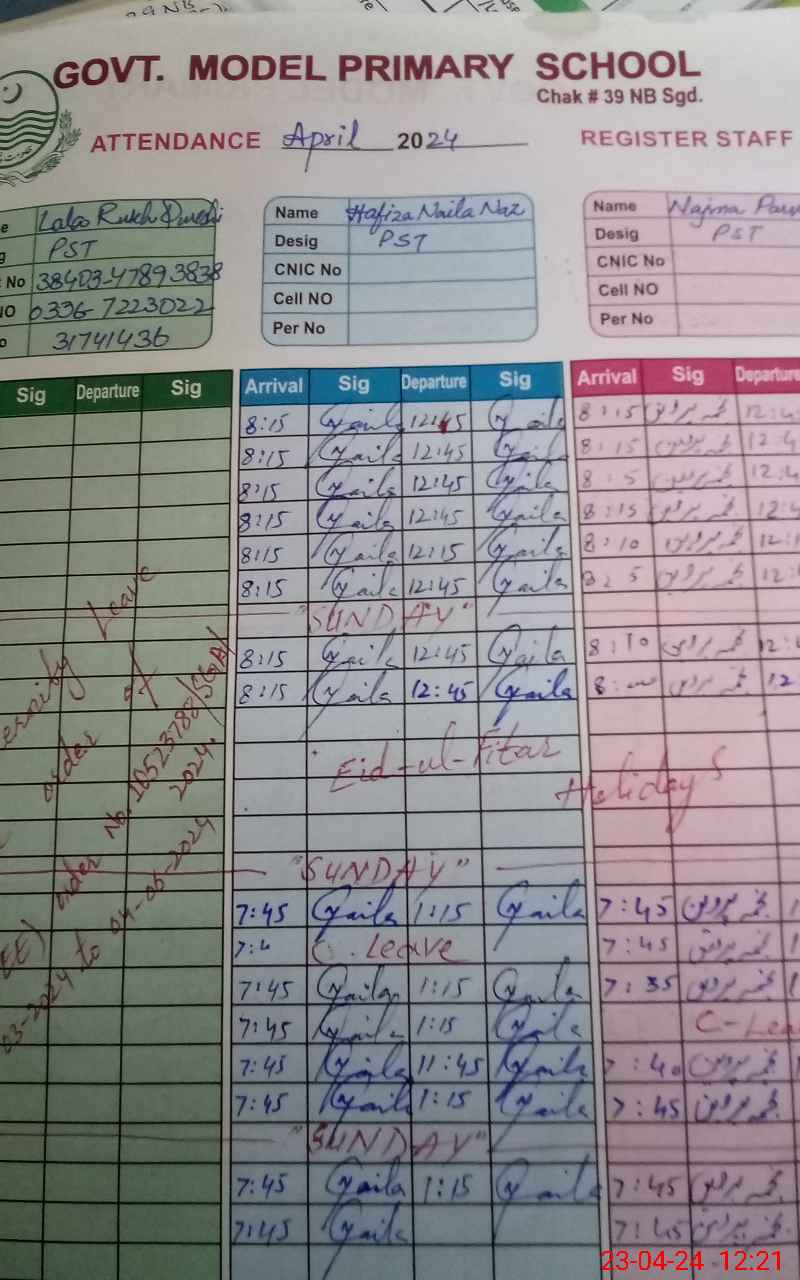 GOVT. MODEL PRIMARY SCHOOL
Chak # 39 NB Sgd.
ATTENDANCE April 2024 REGISTER STAFF
Name Hafiza Naila Naz
Desig PST
CNIC No
Cell NO
Per No
Name Najma
Desig PST
CNIC No
Cell NO
Per No
Rukh
PST
No 38403-47893838
NO 0336-7223022
31741436
Sig Departure Sig Arrival Sig Departure Sig Arrival Sig Departure
8:15 Naila 12:45 Naila 8:15 نجمہ پروین 12:4
8:15 Naila 12:45 Naila 8:15 نجمہ پروین 12:4
8:15 Naila 12:45 Naila 8:5 نجمہ پروین 12:4
8:15 Naila 12:45 Naila 8:15 نجمہ پروین 12:4
8:15 Naila 12:15 Naila 8:10 نجمہ پروین 12:
8:15 Naila 12:45 Naila نجمہ پروین 12:
"SUNDAY"
8:15 Naila 12:45 Naila 8:10 نجمہ پروین 12:
8:15 Naila 12:45 Naila 8: نجمہ پروین 12
Eid-ul-Fitar Holidays
"SUNDAY"
7:45 Naila 1:15 Naila 7:45 نجمہ پروین 1
7:4 C. Leave 7:45 نجمہ پروین 1
7:45 Naila 1:15 Naila 7:35 نجمہ پروین 1
7:45 Naila 1:15 Naila C-Lea
7:45 Naila 11:45 Naila 7:40 نجمہ پروین
7:45 Naila 1:15 Naila 7:45 نجمہ پروین
"SUNDAY"
7:45 Naila 1:15 Naila 7:45 نجمہ پروین
7:45 Naila 7:45 نجمہ پروین
ernity Leave
order of
order No. 10523788/SGA/
2024.
EE)
03-2024 to 04-05-2024
23-04-24 12:21